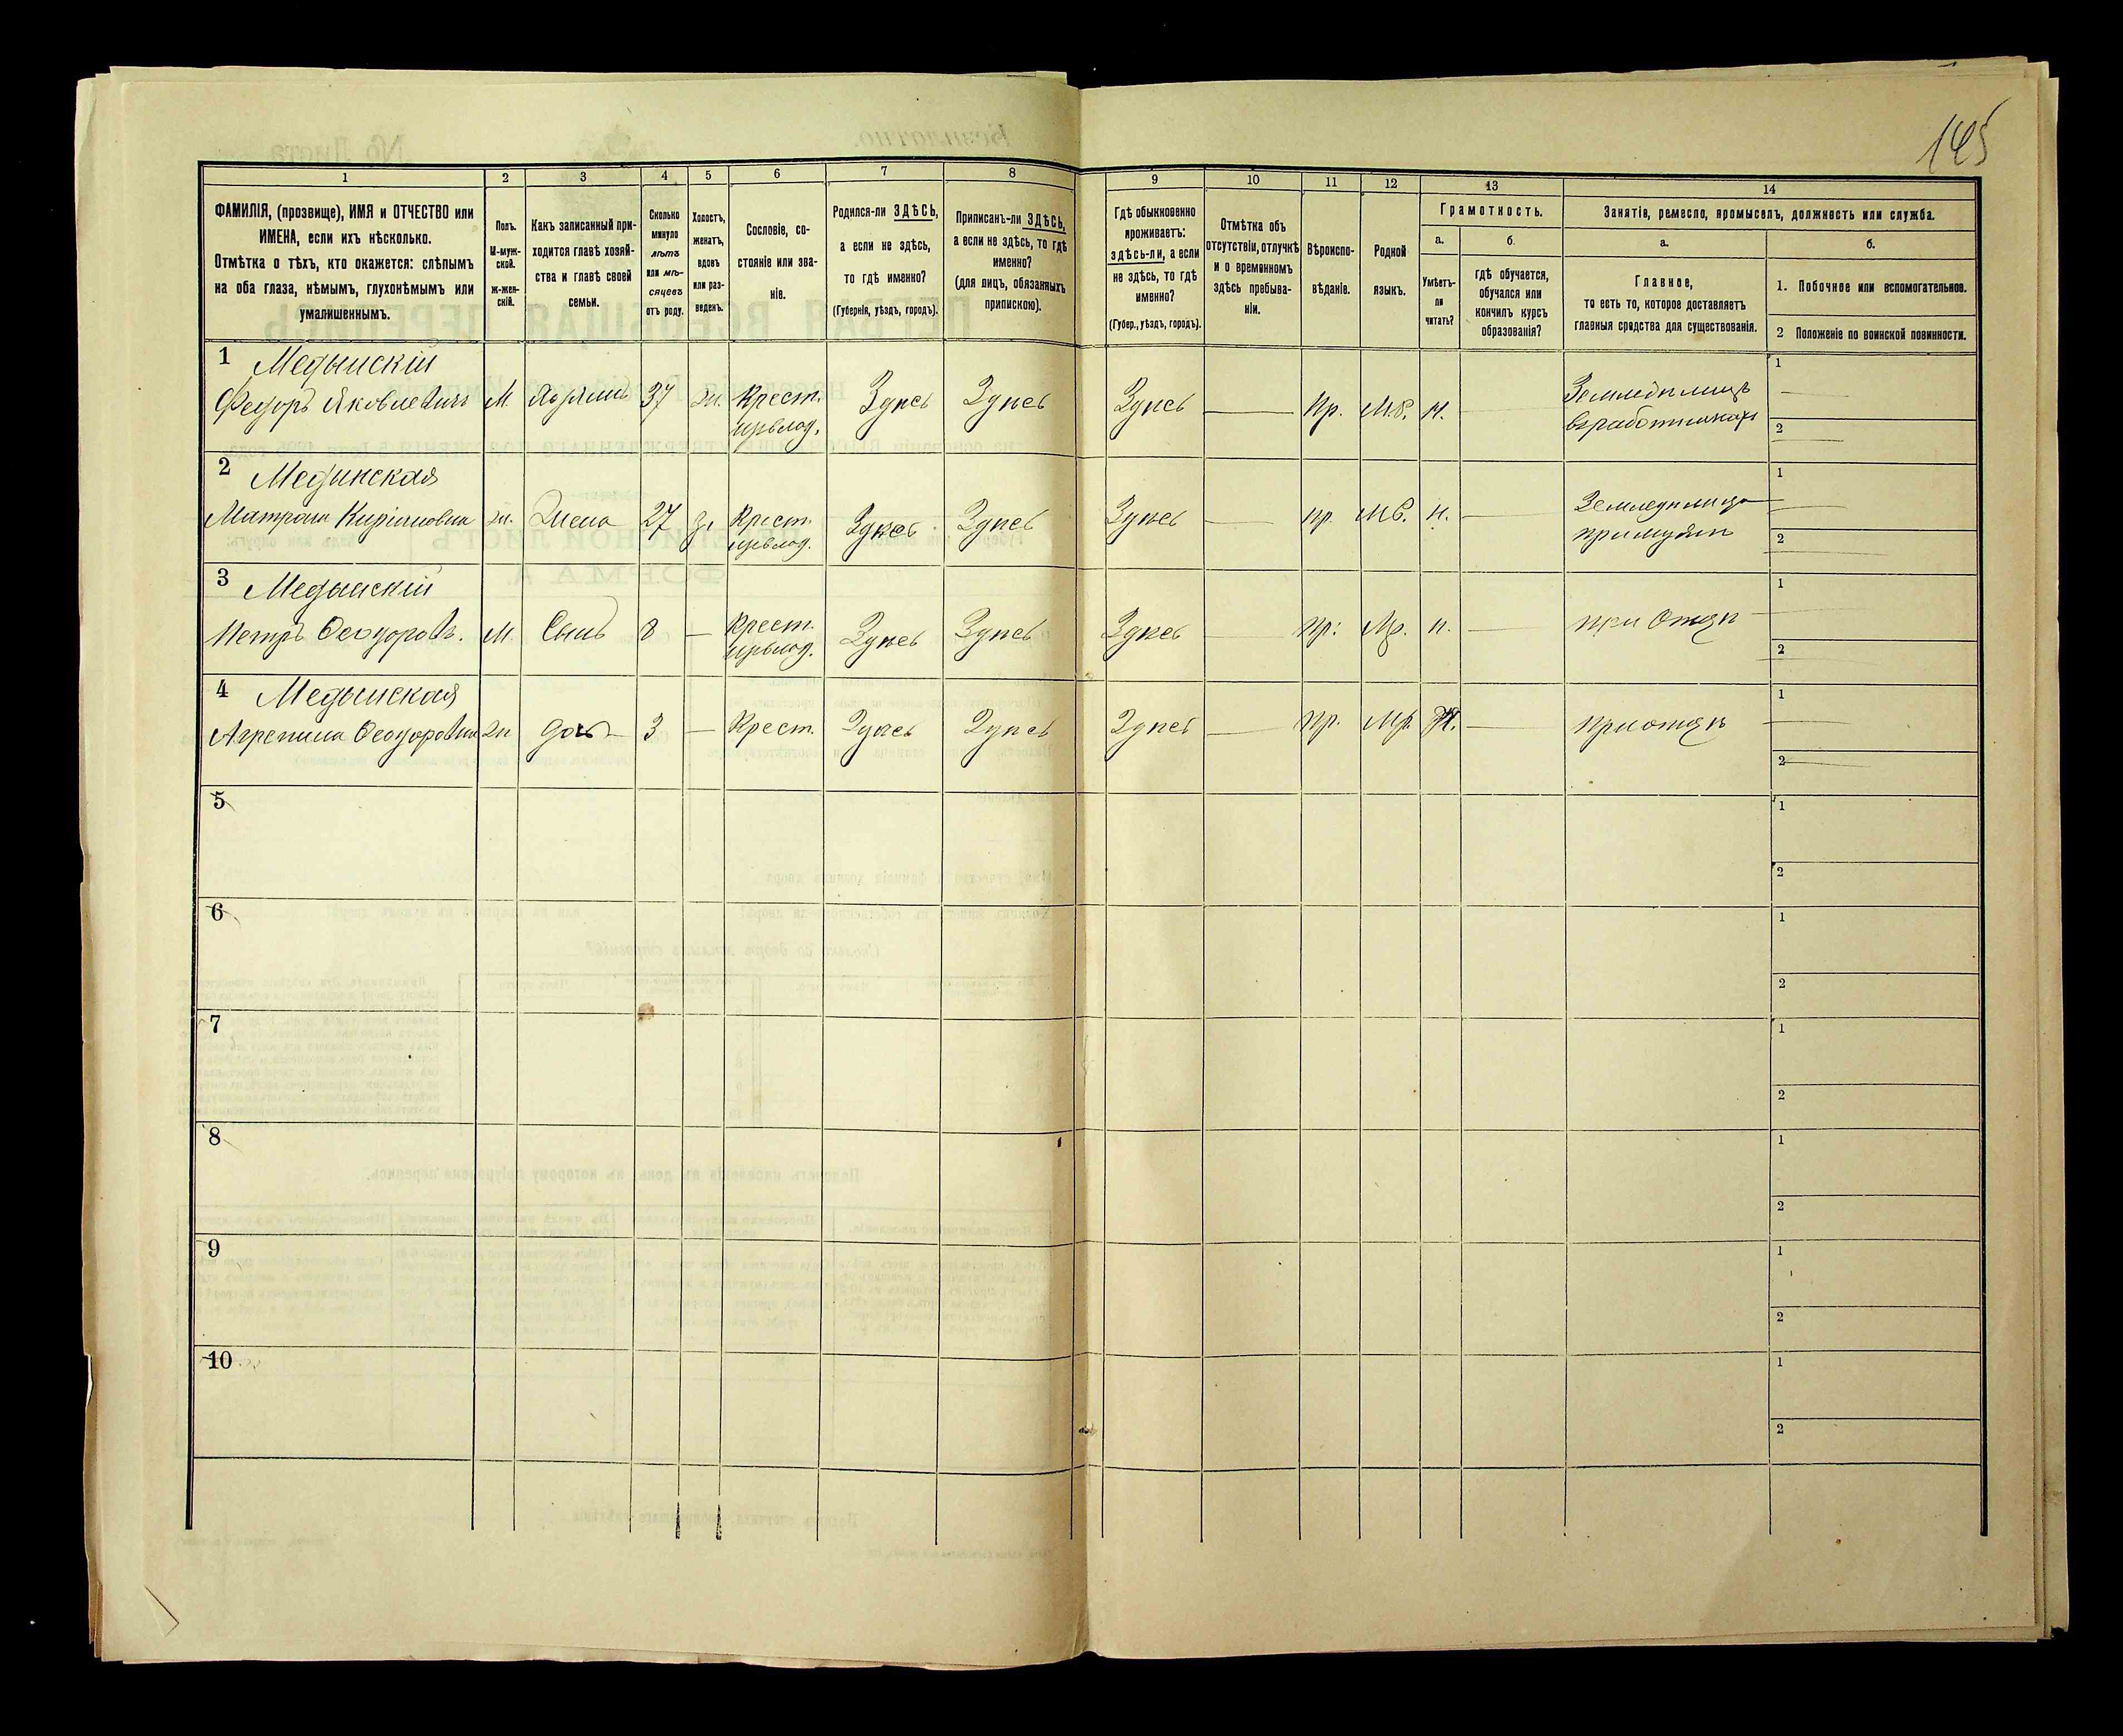 145
1
2
3
4
5
6
7
8
9
10
11
12
13
14
ФАМИЛІЯ, (прозвище), ИМЯ и ОТЧЕСТВО или
ИМЕНА, если ихъ нѣсколько.
Отмѣтка о тѣхъ, кто окажется: слѣпымъ
на оба глаза, нѣмымъ, глухонѣмымъ или
умалишеннымъ.
Полъ.
М-муж-
ской.
Ж-жен-
скій.
Какъ записанный при-
ходится главѣ хозяй-
ства и главѣ своей
семьи.
Сколько
минуло
лѣтъ
или мѣ-
сяцевъ
отъ роду.
Холостъ,
женатъ,
вдовъ
или раз-
веденъ.
Сословіе, со-
стояніе или зва-
ніе.
Родился-ли ЗДѢСЬ,
а если не здѣсь,
то гдѣ именно?
(Губернія, уѣздъ, городъ).
Приписанъ-ли ЗДѢСЬ,
а если не здѣсь, то гдѣ
именно?
(для лицъ, обязанныхъ
припискою).
Гдѣ обыкновенно
проживаетъ:
здѣсь-ли, а если
не здѣсь, то гдѣ
именно?
(Губер., уѣздъ, городъ).
Отмѣтка объ
отсутствіи, отлучкѣ
и о временномъ
здѣсь пребыва-
ніи.
Вѣроиспо-
вѣданіе.
Родной
языкъ.
Грамотность.
а.
Умѣетъ-
ли
читать?
б.
гдѣ обучается,
обучался или
кончилъ курсъ
образованія?
Занятіе, ремесло, промыселъ, должность или служба.
а.
Главное,
то есть то, которое доставляетъ
главныя средства для существованія.
б.
1. Побочное или вспомогательное.
2 Положеніе по воинской повинности.
1 Медынскій
Федоръ Яковлевичъ М. Хозяинъ 37 ж. Крест. Здѣсь Здѣсь Здѣсь — Пр. М.Р. Н. — Земледѣлецъ
1
2
2 Медынская
Матрона Киріаковна ж. Жена 27 з. Крест. Здѣсь Здѣсь Здѣсь — пр. М.Р. н. — Земледѣлица
при мужѣ
1
2
3 Медынскій
Петръ Ѳеодоров. М. Сынъ 8 — Крест. Здѣсь Здѣсь Здѣсь — Пр. М.р. н. — при Отцѣ
1
2
4 Медынская
Агрепина Ѳеодоровна ж дочь 3 — Крест. Здѣсь Здѣсь Здѣсь — Пр. М.р. Н. — при отцѣ
1
2
5
1
2
6
1
2
7
1
2
8
1
2
9
1
2
10
1
2